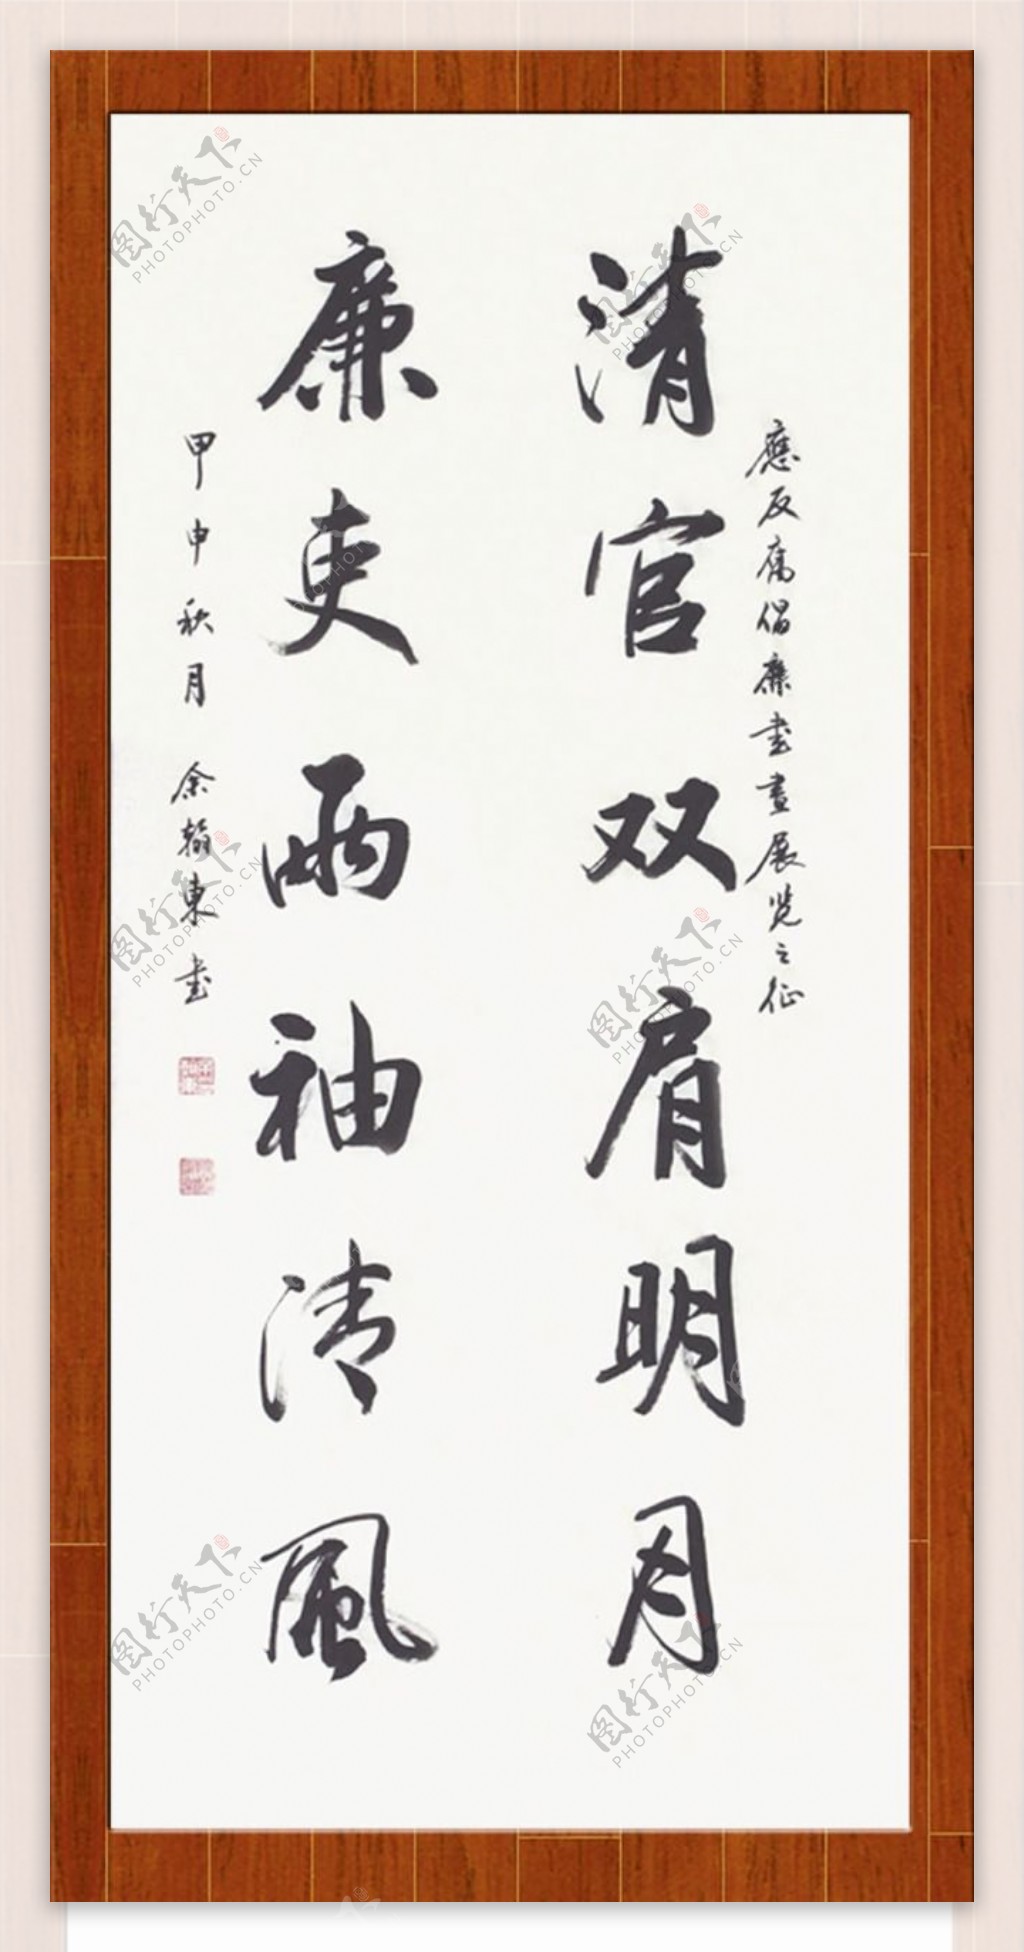 應反腐倡廉书畫展览之征
清官双肩明月
廉吏兩袖清風
甲申秋月 余翰東书
图行天下
PHOTOPHOTO.CN
图行天下
PHOTOPHOTO.CN
图行天下
PHOTOPHOTO.CN
图行天下
PHOTOPHOTO.CN
图行天下
PHOTOPHOTO.CN
图行天下
PHOTOPHOTO.CN